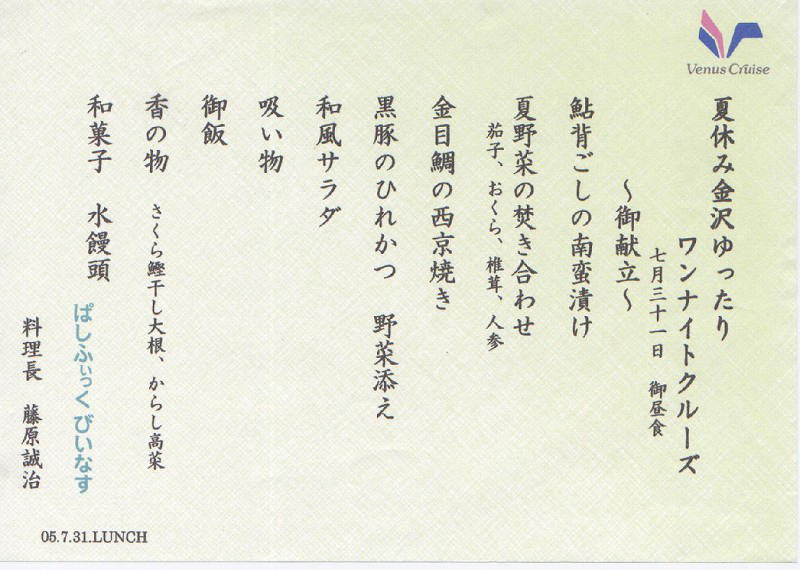 Venus Cruise
夏休み金沢ゆったり
ワンナイトクルーズ
七月三十一日 御昼食
〜御献立〜
鮎背ごしの南蛮漬け
夏野菜の焚き合わせ
茄子、おくら、椎茸、人参
金目鯛の西京焼き
黒豚のひれかつ 野菜添え
和風サラダ
吸い物
御飯
香の物 さくら鰹干し大根、からし高菜
和菓子 水饅頭
ぱしふぃっく びいなす
料理長 藤原誠治
05.7.31.LUNCH